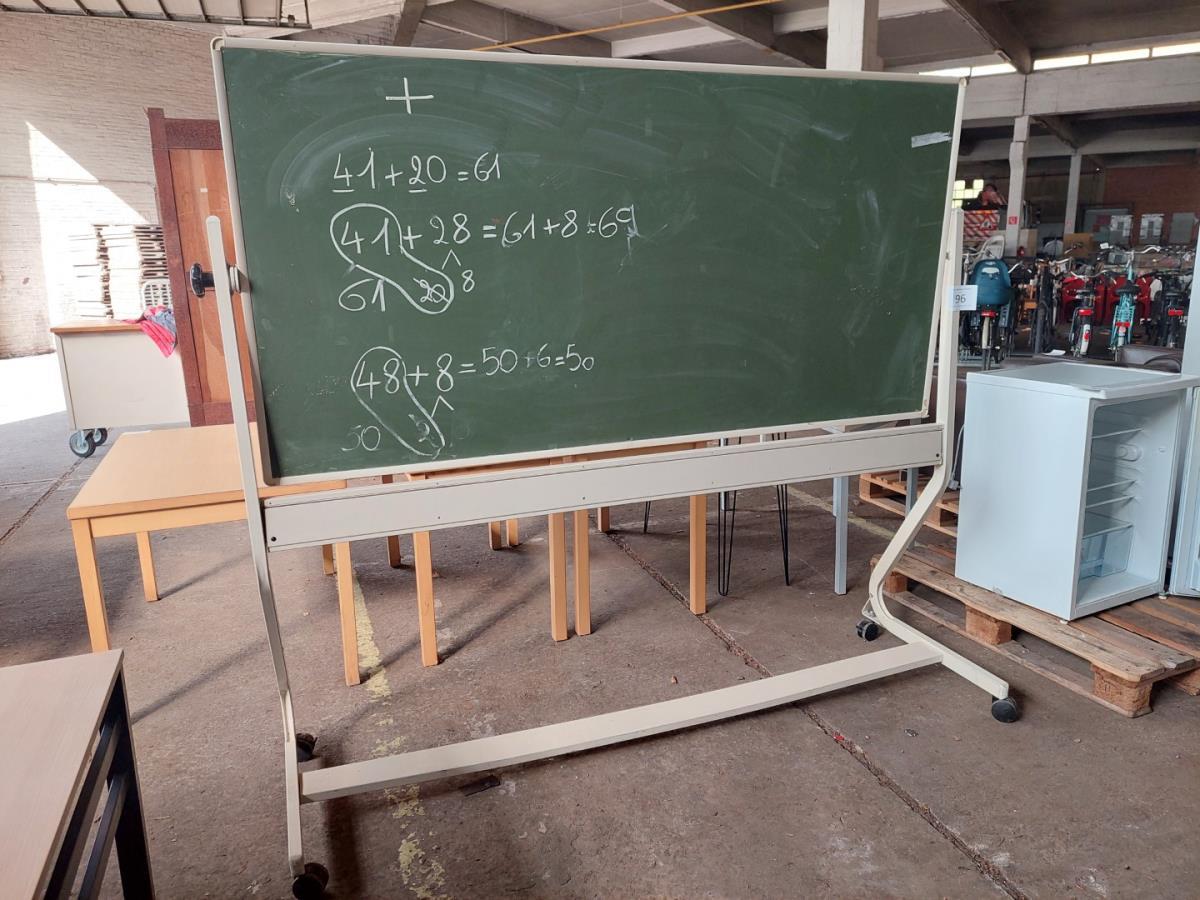 +
41+20=61
41+28=61+8=69
61 20 8
48+8=50+6=50
50 2
96